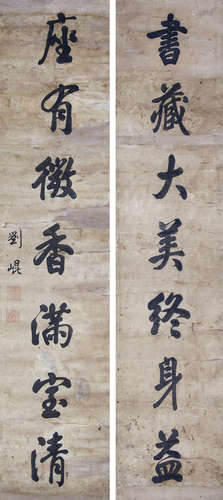 書藏大美終身益
座有微香滿室清
劉崐